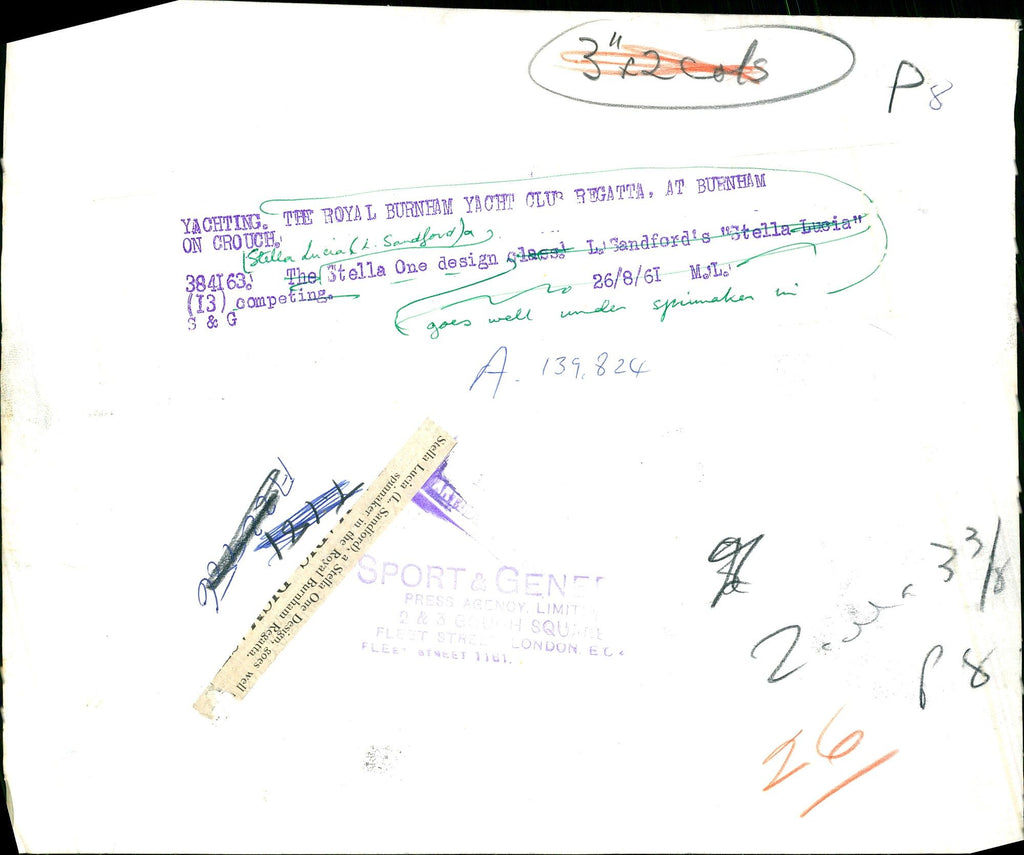 3" x 2 cols
P 8
YACHTING. THE ROYAL BURNHAM YACHT CLUB REGATTA, AT BURNHAM
ON CROUCH.
Stella Lucia (L. Sandford) a
384163. The Stella One design class. L. Sandford's "Stella Lucia"
(13) competing. 26/8/61 M.L.
S & G
goes well under spinnaker in
A. 139,824
Stella Lucia (L. Sandford), a Stella One Design, goes well
spinnaker in the Royal Burnham Regatta.
SPORT & GENE
PRESS AGENCY, LIMIT
2 & 3 GOUGH SQUARE
FLEET STREET LONDON, E.C.4
FLEET STREET 1181.
3 3/8
2
P 8
26